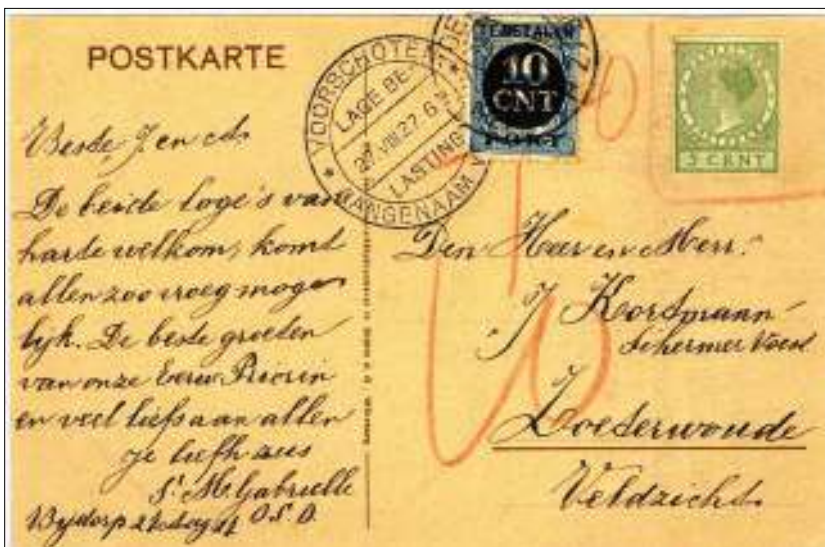 POSTKARTE
VOORSCHOTEN
LAGE BE-
27.VIII.27.6
LASTING
AANGENAAM
TE BETALEN
10
CNT
PORT
3 CENT
Beste J en
De beide logé's van
harte welkom, komt
allen zoo vroeg moge
lijk. De beste groeten
van onze Eerw Priorin
en veel liefs aan allen
je liefh zus
Sr M Gabrielle
Bijdorp O.S.D.
Den Heer en Mevr.
J Kortmann
Schermer Voest
Zoeterwoude
Veldzicht